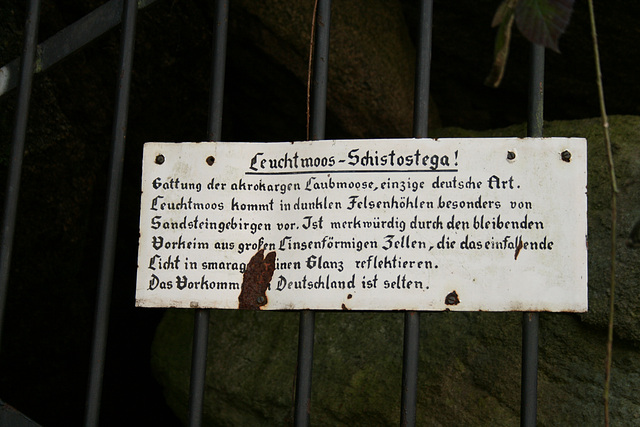 Leuchtmoos-Schistostega!
Gattung der akrokargen Laubmoose, einzige deutsche Art.
Leuchtmoos kommt in dunklen Felsenhöhlen besonders von
Sandsteingebirgen vor. Ist merkwürdig durch den bleibenden
Vorkeim aus großen Linsenförmigen Zellen, die das einfallende
Licht in Glanz reflektieren.
Das Deutschland ist selten.